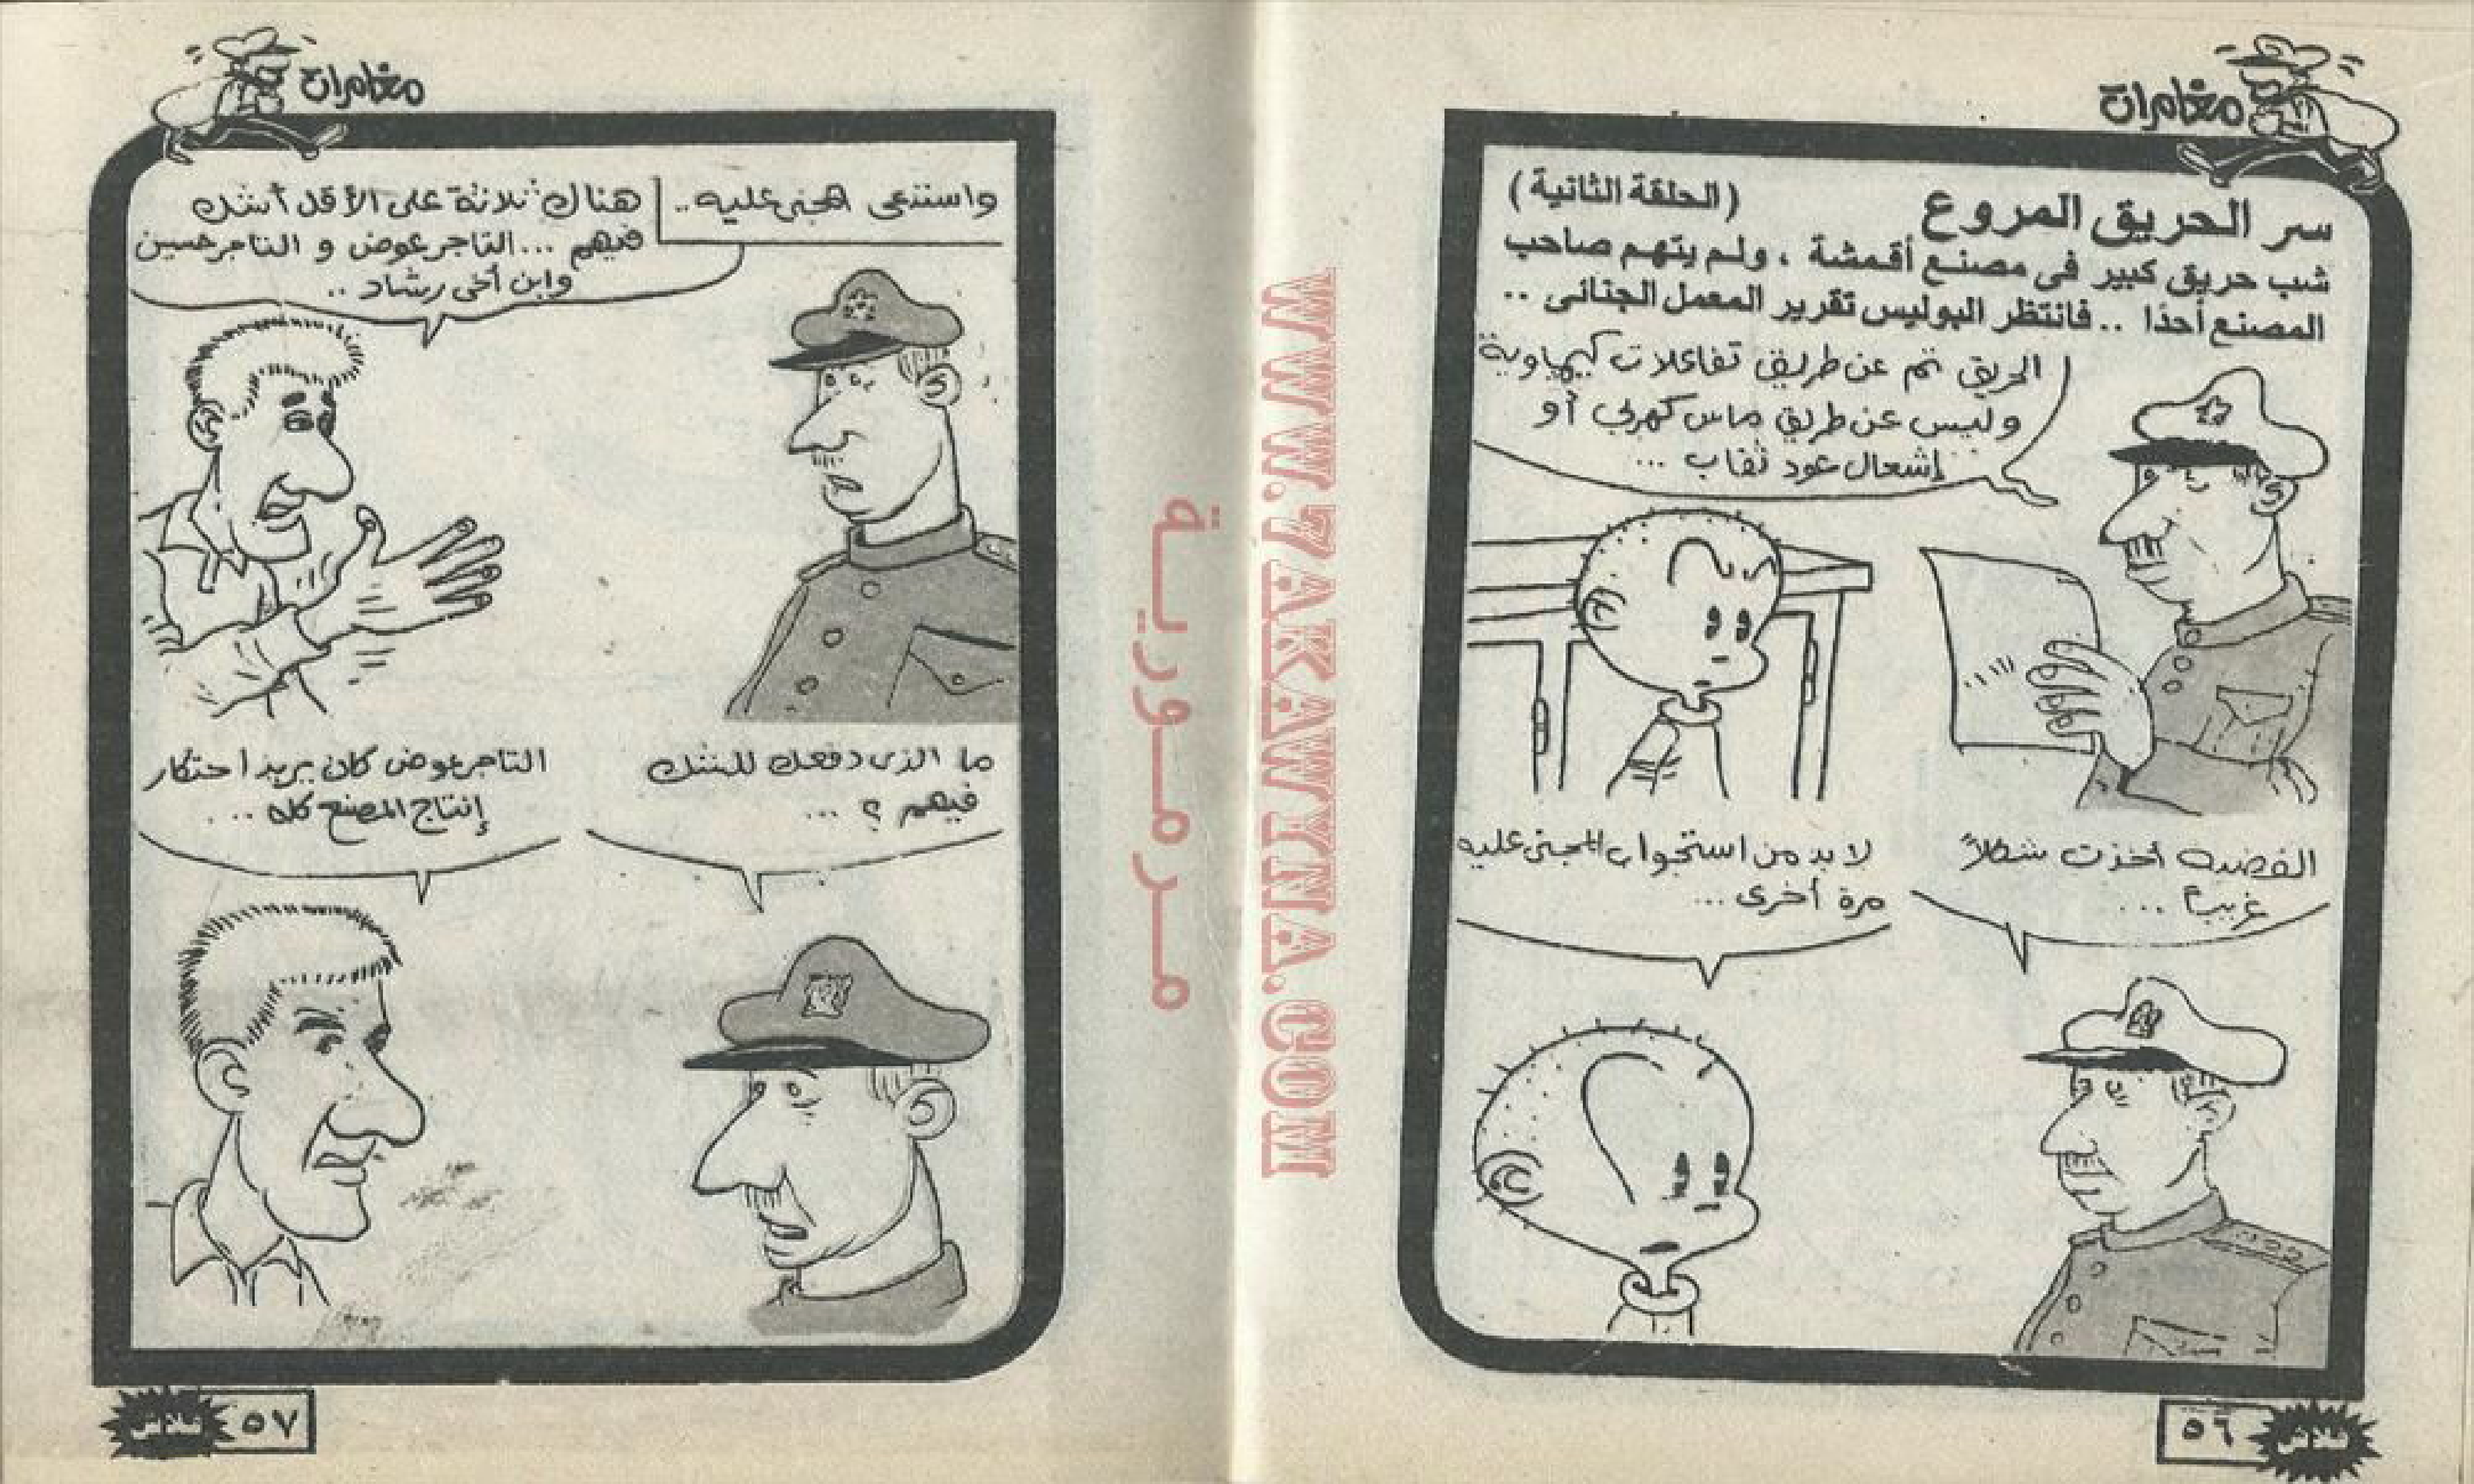 مغامرات
سر الحريق المروع
(الحلقة الثانية)
شب حريق كبير فى مصنع أقمشة ، ولم يتهم صاحب
المصنع أحدًا .. فانتظر البوليس تقرير المعمل الجنائى ..
الحريق تم عن طريق تفاعلات كيماوية
وليس عن طريق ماس كهربى أو
إشعال عود ثقاب ...
القضية أخذت شكلاً
غريبًا ...
لا بد من استجواب المجنى عليه
مرة أخرى ...
٥٦
فلاش
مغامرات
واستدعى المجنى عليه ..
هناك ثلاثة على الأقل أشك
فيهم ... التاجر عوض و التاجر حسين
وابن أخى رشاد ..
ما الذى دفعك للشك
فيهم ؟ ...
التاجر عوض كان يريد احتكار
إنتاج المصنع كله ...
٥٧
فلاش
مرمورية
WWW.7AKAWINA.COM